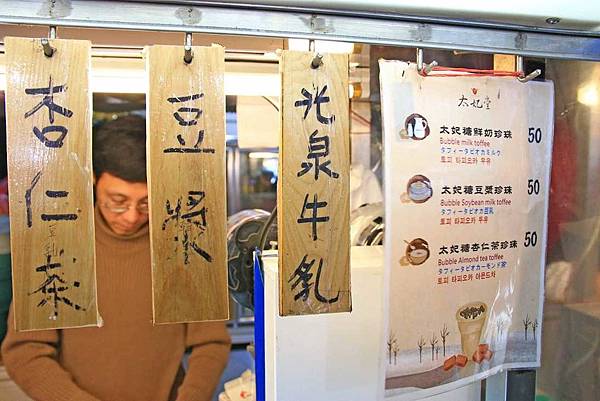 杏仁茶
豆漿
光泉牛乳
太妃堂
太妃糖鮮奶珍珠 50
Bubble milk toffee
タフィータピオカミルク
토피 타피오카 우유
太妃糖豆漿珍珠 50
Bubble Soybean milk toffee
タフィータピオカ豆乳
토피 타피오카 두유
太妃糖杏仁茶珍珠 50
Bubble Almond tea toffee
タフィータピオカーモンド茶
토피 타피오카 아몬드차